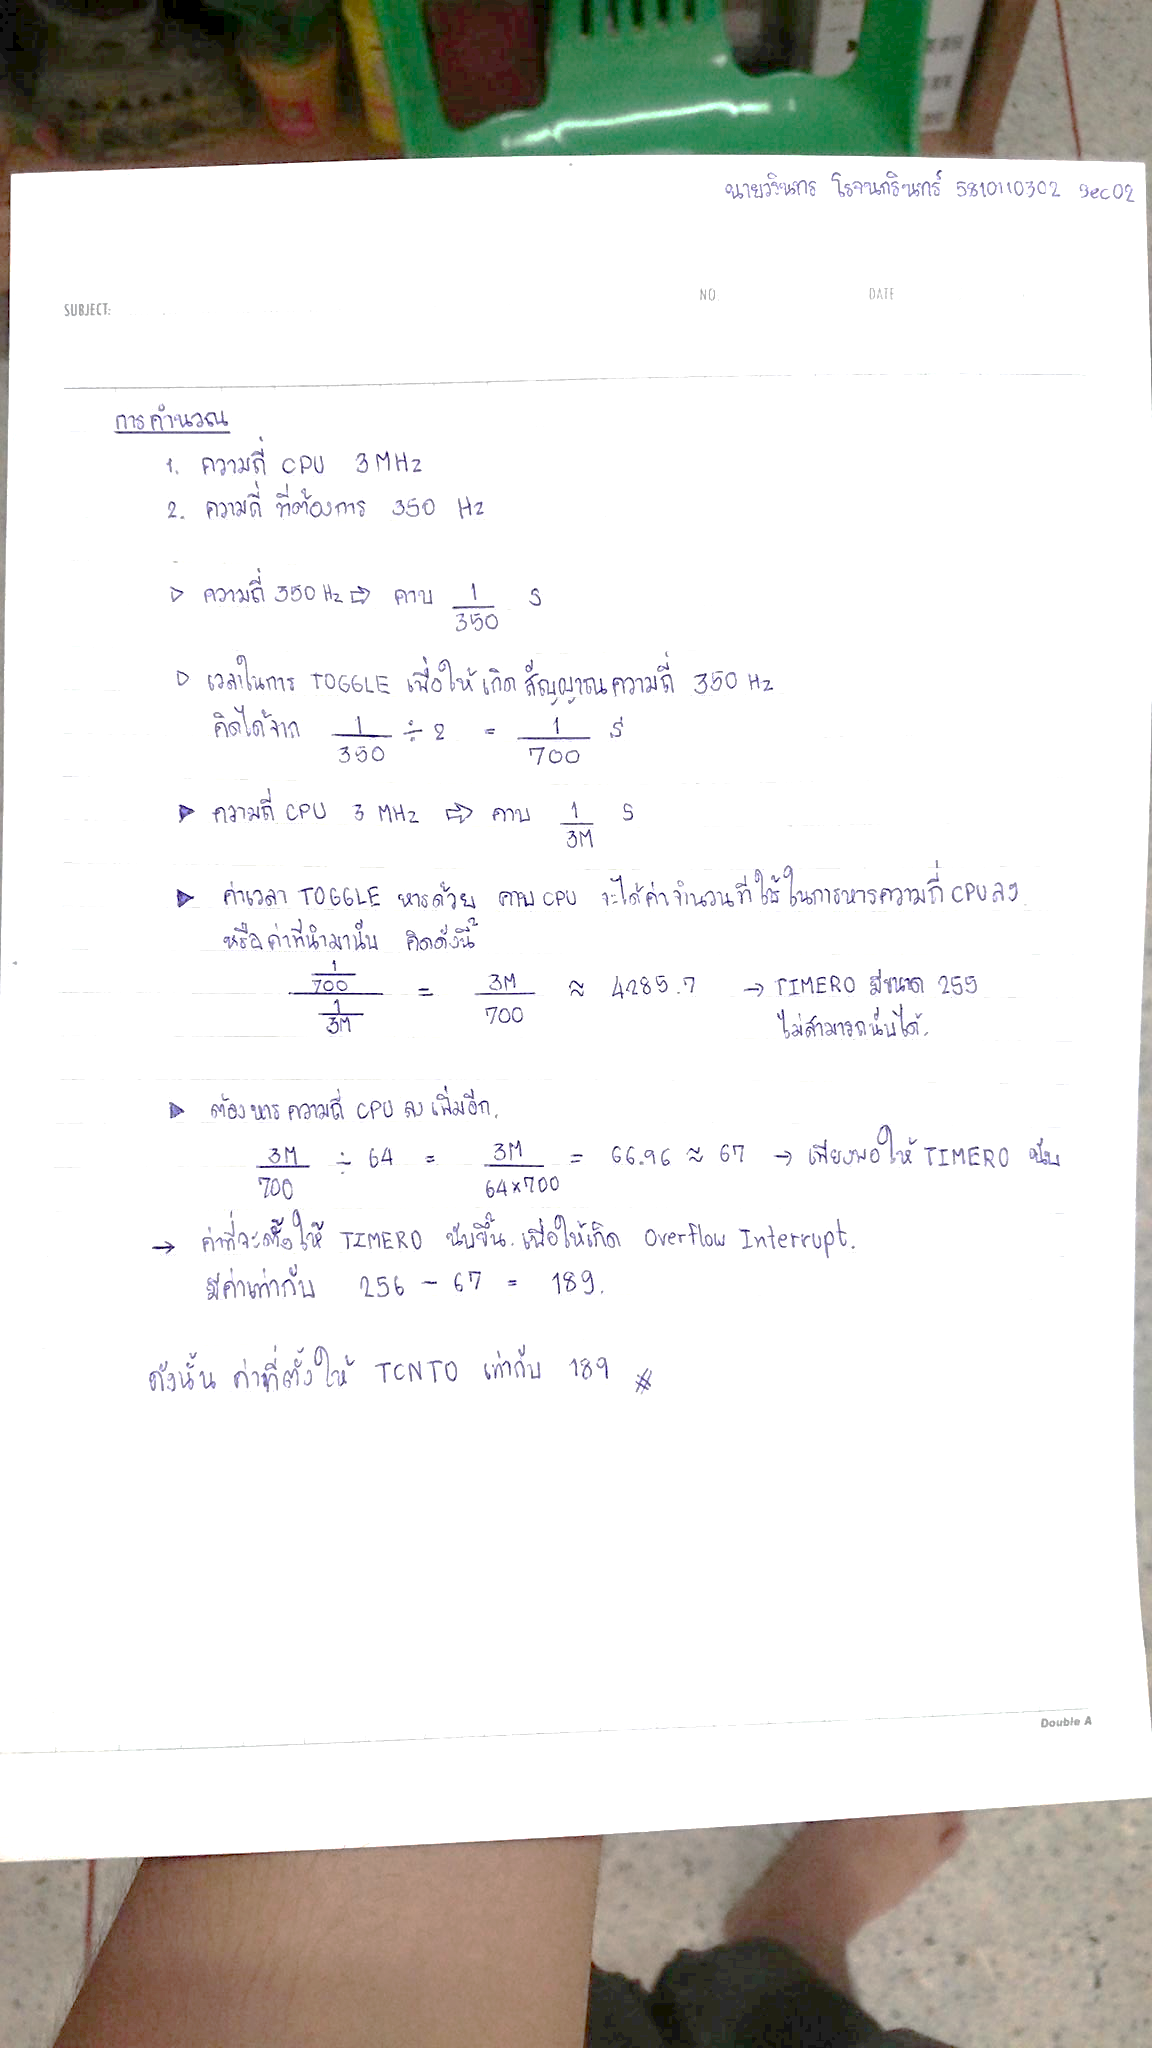 นายวรินทร โรจนกรินทร์ 5810110302 Sec02
SUBJECT:
NO
DATE
การคำนวณ
1. ความถี่ CPU 3 MHz
2. ความถี่ ที่ต้องการ 350 Hz
▷ ความถี่ 350 Hz ⇒ คาบ 1/350 S
▷ เวลาในการ TOGGLE เพื่อให้เกิดสัญญาณความถี่ 350 Hz
คิดได้จาก 1/350 ÷ 2 = 1/700 S
▶ ความถี่ CPU 3 MHz ⇒ คาบ 1/3M S
▶ ค่าเวลา TOGGLE หารด้วย คาบ CPU จะได้ค่าจำนวนที่ใช้ในการหารความถี่ CPU ลง
หรือค่าที่นำมานับ คิดดังนี้
(1/700)/(1/3M) = 3M/700 ≈ 4285.7 → TIMER0 มีขนาด 255
ไม่สามารถนับได้.
▶ ต้องหารความถี่ CPU ลงเพิ่มอีก.
3M/700 ÷ 64 = 3M/64×700 = 66.96 ≈ 67 → เพียงพอให้ TIMER0 นับ
→ ค่าที่จะตั้งให้ TIMER0 นับขึ้น. เพื่อให้เกิด Overflow Interrupt.
มีค่าเท่ากับ 256 - 67 = 189.
ดังนั้น ค่าที่ตั้งให้ TCNT0 เท่ากับ 189 #
Double A